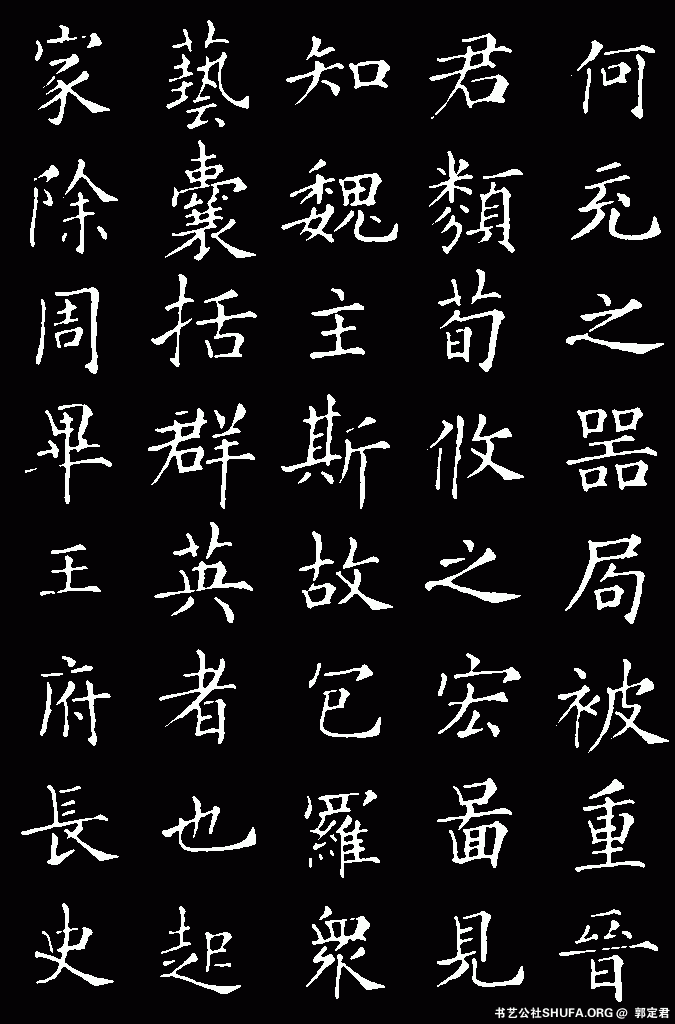 何充之器局被重晉
君類荀攸之宏圖見
知魏主斯故包羅衆
藝囊括群英者也起
家除周畢王府長史
书艺公社SHUFA.ORG @ 郭定君